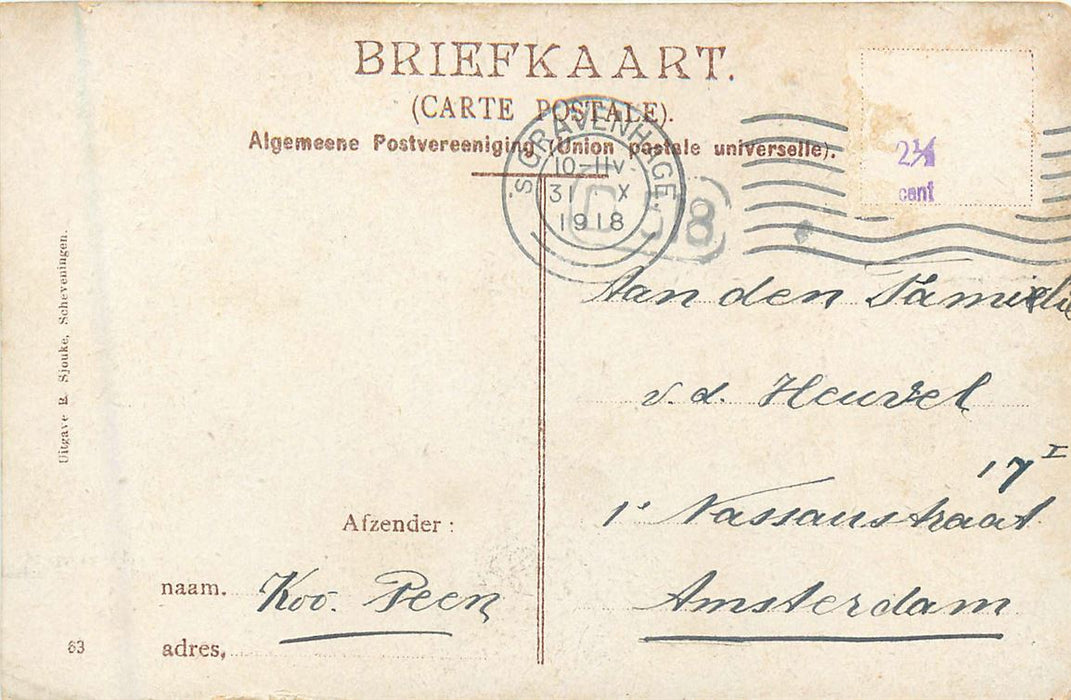 BRIEFKAART.
(CARTE POSTALE).
Algemeene Postvereeniging (Union postale universelle).
'SGRAVENHAGE.
10-11V.
31 X
1918
8
2½
cent
Aan den Familie
v. d. Heuvel
17 I
1e Nassaustraat
Amsterdam
Afzender :
naam. Koo. Peen
adres,
63
Uitgave R. Sjouke, Scheveningen.